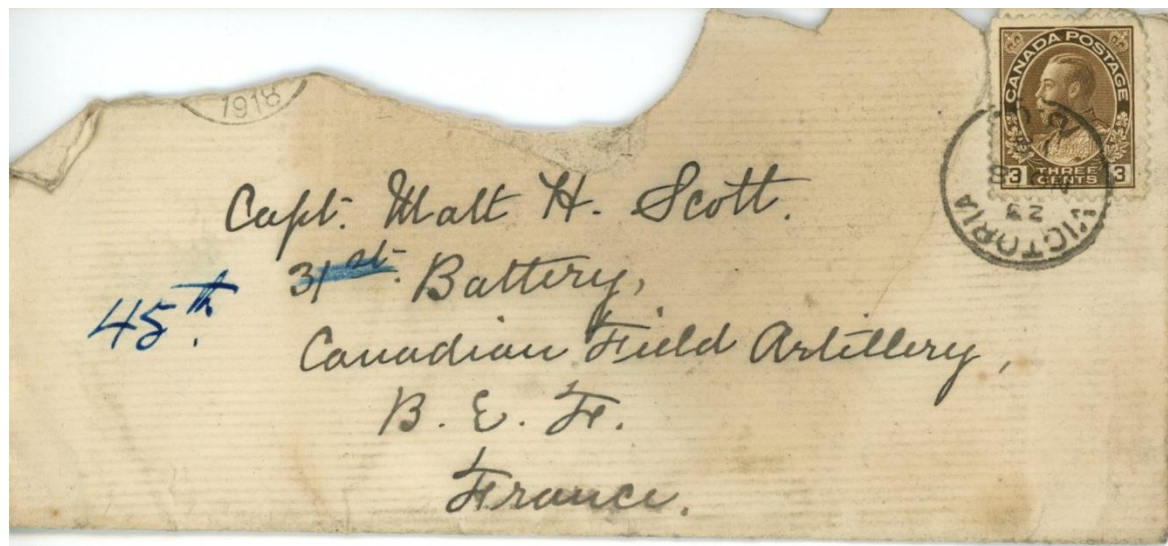 1918
CANADA POSTAGE
3 THREE CENTS 3
VICTORIA
B.C.
23
Capt. Matt H. Scott.
31st. Battery,
45th.
Canadian Field Artillery,
B. E. F.
France.